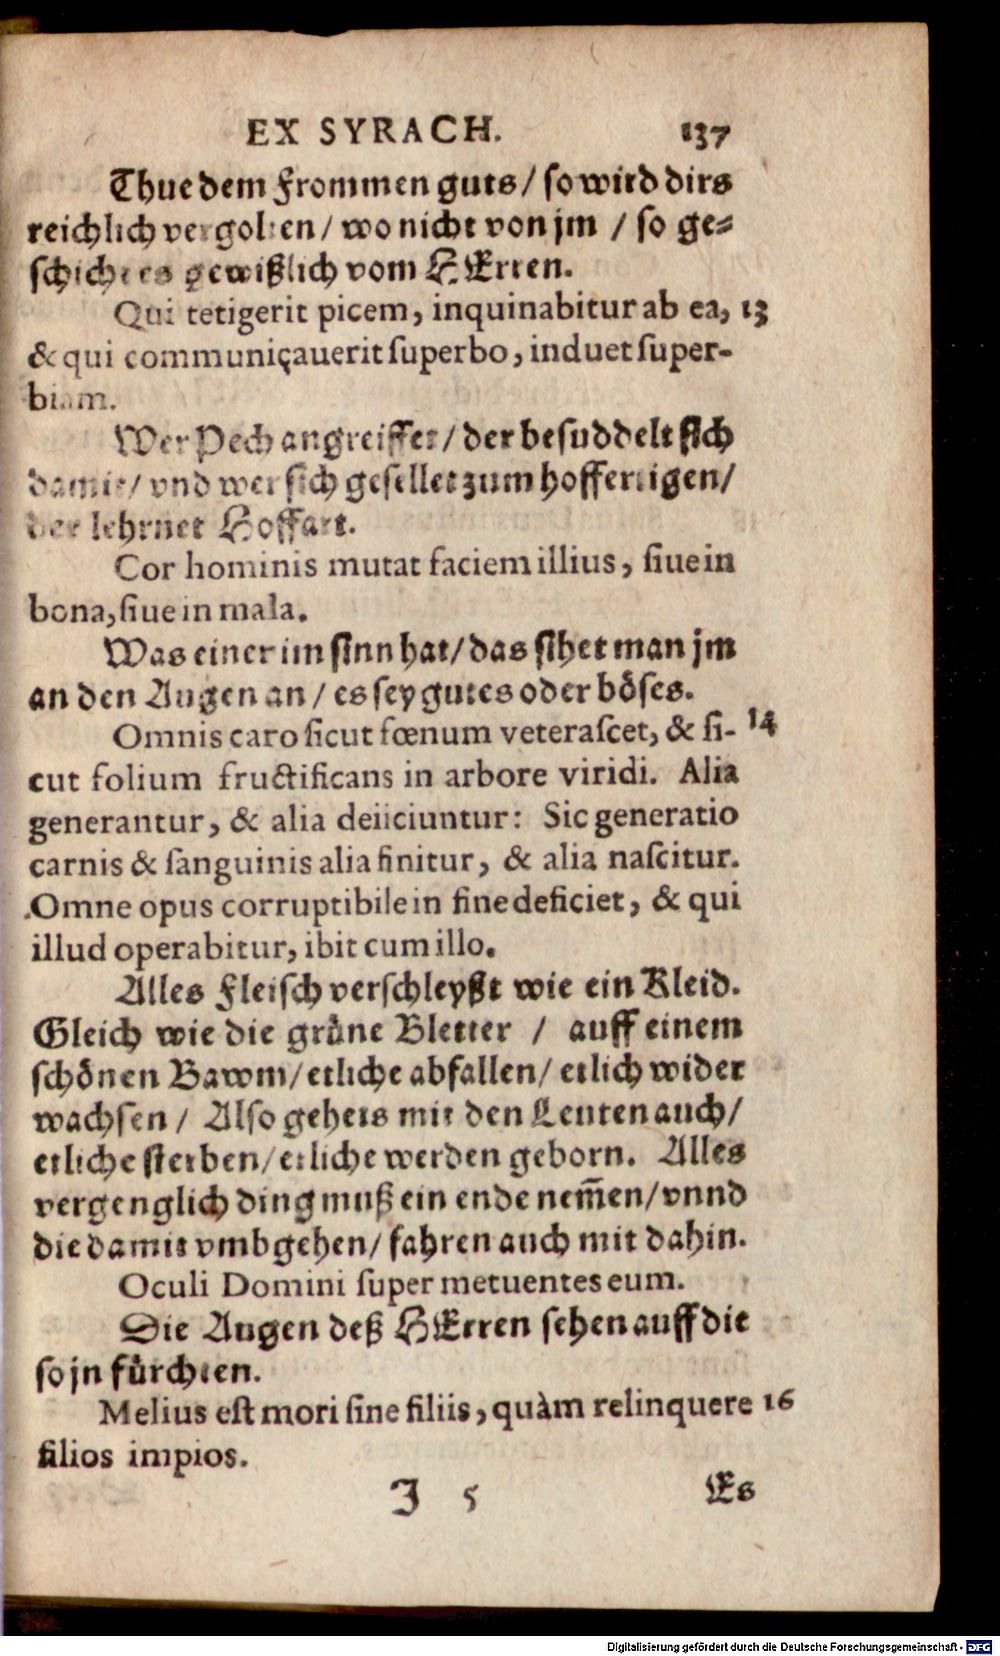 EX SYRACH. 137
Thue dem Frommen guts/ so wird dirs
reichlich vergolten/ wo nicht von jm / so ge-
schicht es gewißlich vom HErren.
Qui tetigerit picem, inquinabitur ab ea, 13
& qui communiçauerit superbo, induet super-
biam.
Wer Pech angreiffet/ der besuddelt sich
damit/ vnd wer sich gesellet zum hoffertigen/
der lehrnet Hoffart.
Cor hominis mutat faciem illius, siue in
bona, siue in mala.
Was einer im sinn hat/ das sihet man jm
an den Augen an / es sey gutes oder böses.
Omnis caro sicut fœnum veterascet, & si- 14
cut folium fructificans in arbore viridi. Alia
generantur, & alia deiiciuntur: Sic generatio
carnis & sanguinis alia finitur, & alia nascitur.
Omne opus corruptibile in fine deficiet, & qui
illud operabitur, ibit cum illo.
Alles Fleisch verschleyßt wie ein Kleid.
Gleich wie die grüne Bletter / auff einem
schönen Bawm/ etliche abfallen/ etlich wider
wachsen / Also gehets mit den Leuten auch/
etliche sterben/ etliche werden geborn. Alles
vergenglich ding muß ein ende nem̃en/ vnnd
die damit vmbgehen/ fahren auch mit dahin.
Oculi Domini super metuentes eum.
Die Augen deß HErren sehen auff die
so jn fürchten.
Melius est mori sine filiis, quàm relinquere 16
filios impios.
J 5 Es
Digitalisierung gefördert durch die Deutsche Forschungsgemeinschaft - DFG